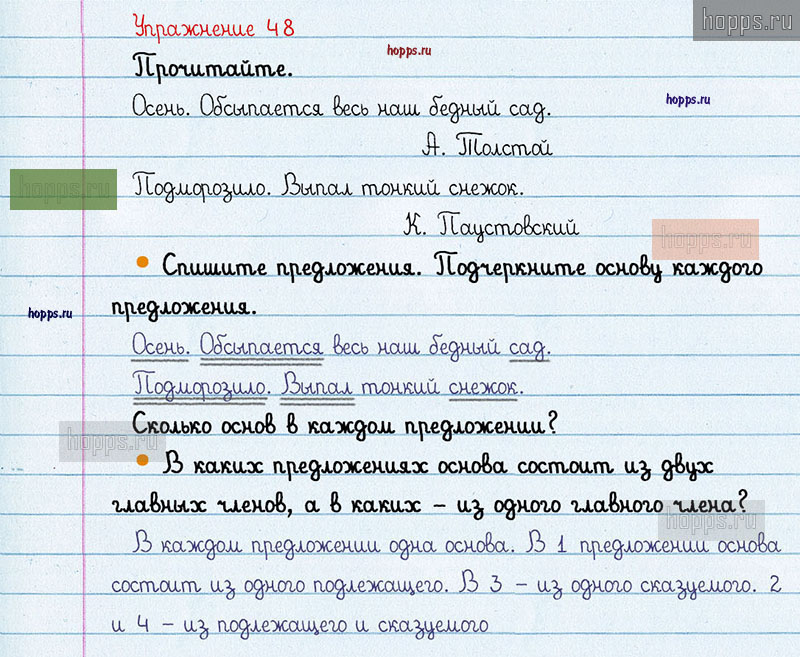 hopps.ru
Упражнение 48
hopps.ru
Прочитайте.
Осень. Обсыпается весь наш бедный сад.
hopps.ru
А. Толстой
hopps.ru
Подморозило. Выпал тонкий снежок.
К. Паустовский
hopps.ru
• Спишите предложения. Подчеркните основу каждого
предложения.
hopps.ru
Осень. Обсыпается весь наш бедный сад.
Подморозило. Выпал тонкий снежок.
Сколько основ в каждом предложении?
hopps.ru
• В каких предложениях основа состоит из двух
главных членов, а в каких – из одного главного члена?
hopps.ru
В каждом предложении одна основа. В 1 предложении основа
состоит из одного подлежащего. В 3 – из одного сказуемого. 2
и 4 – из подлежащего и сказуемого